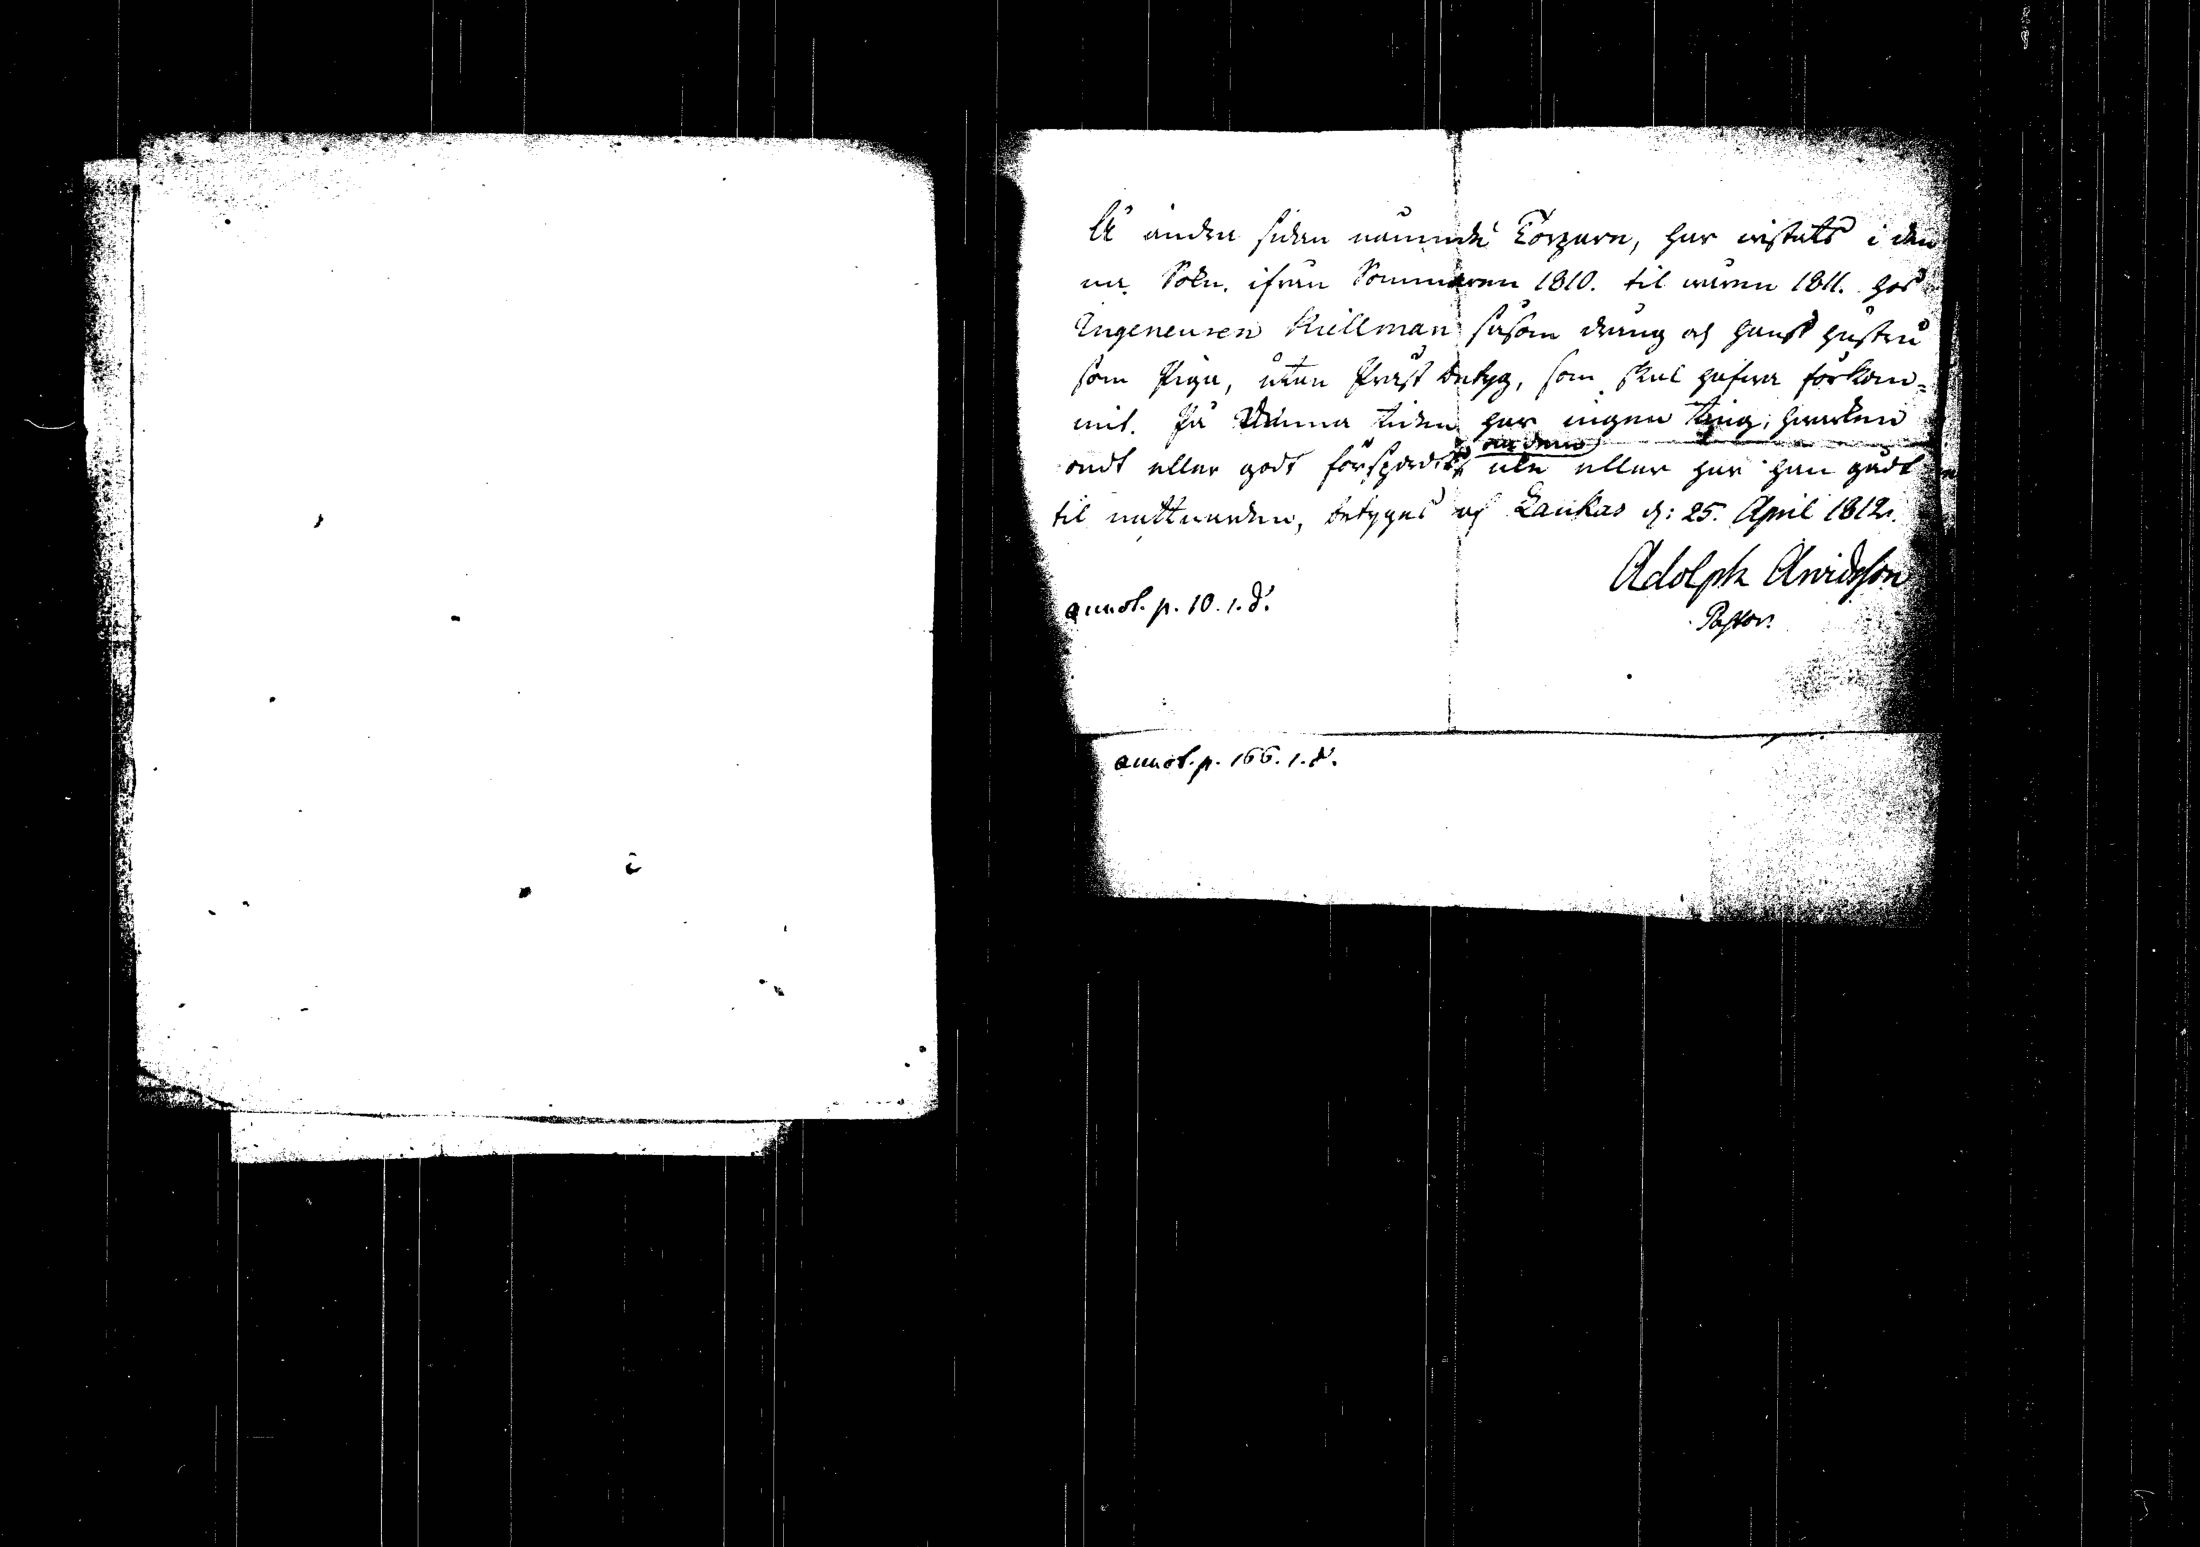 Å andra sidan nämnde Torparn, har wistats i den
na Sokn. ifrån Sommaren 1810. til wåren 1811. hos
Ingeneuren Kiellman såsom dräng och hans hustru
som Piga, utan Präst betyg, som skal hafwa förkom=
mit. På denna tiden har ingen ting, hwarken
ondt eller godt försports om dem
eller har han gådt
til nattwarden, betygas af Laukas d: 25. April 1812.
Adolph Arwidsson
Pastor.
annot. p. 10. 1. d.
annot. p. 166. 1. d.